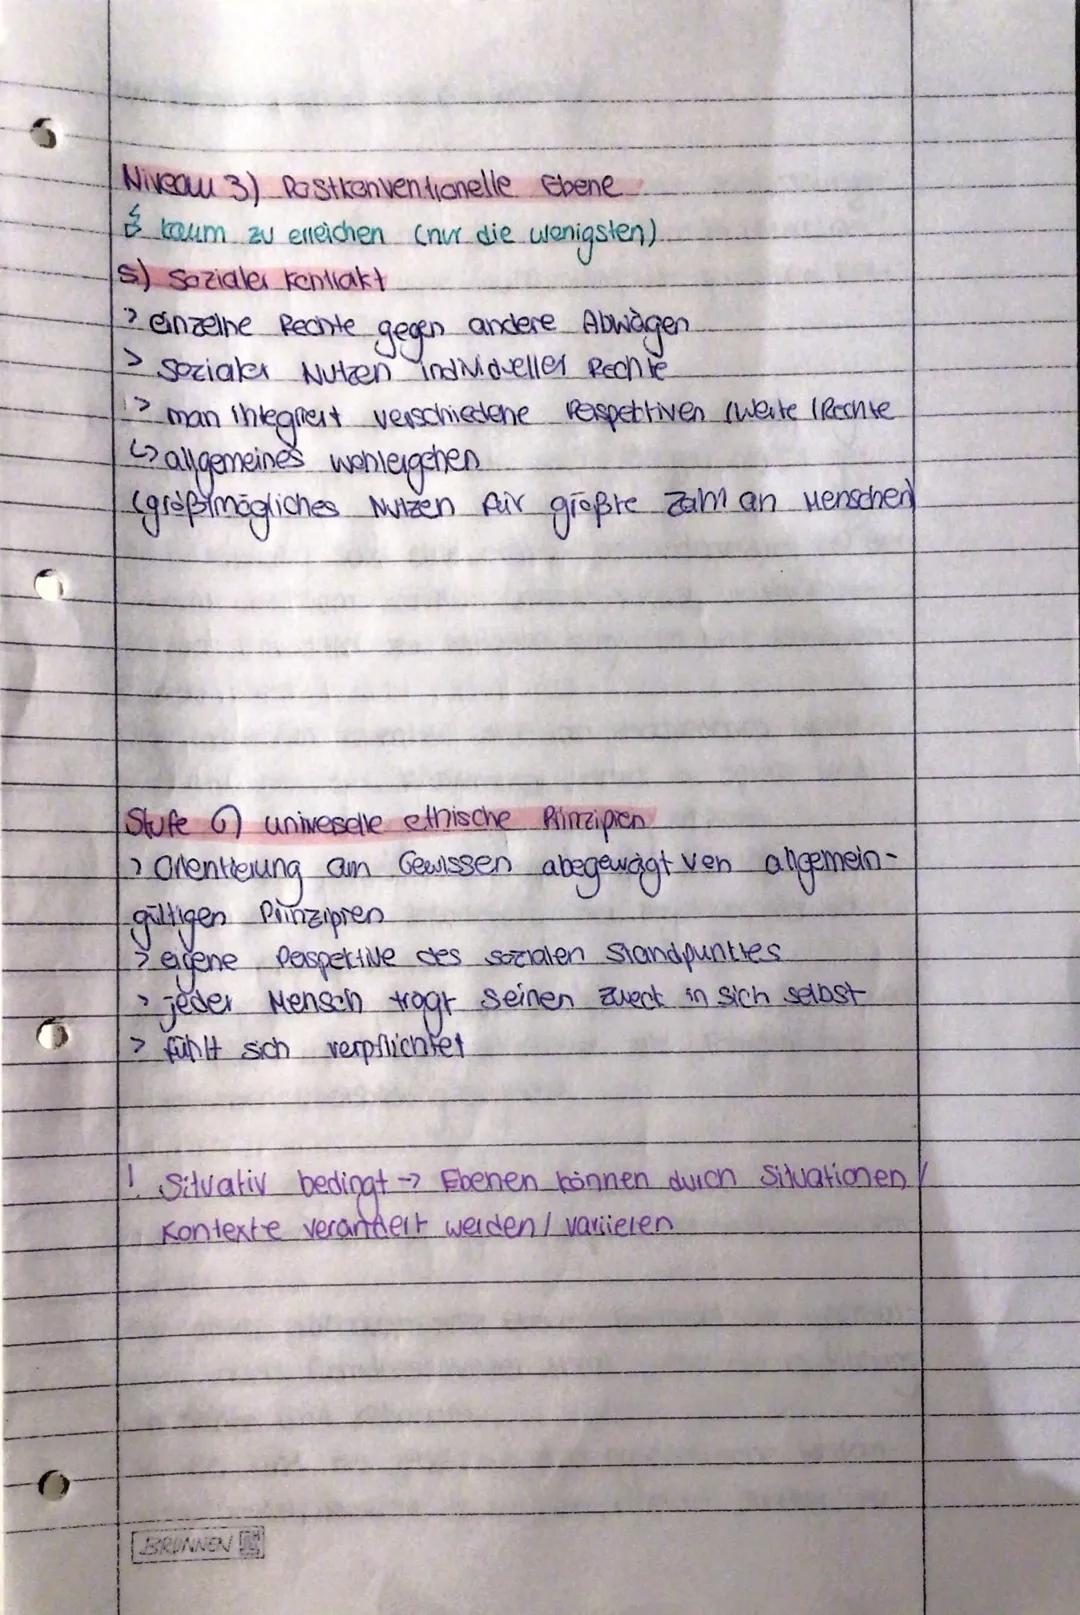 Niveau 3) Postkonventionelle Ebene
kaum zu erreichen (nur die wenigsten)
5) Sozialer Kontrakt
> einzelne Rechte gegen andere Abwägen
> sozialer Nutzen individueller Rechte
> man integriert verschiedene Perspektiven (Werte (Rechte
↳ allgemeines wohlergehen
(größtmögliches Nutzen für größte Zahl an Menschen)
Stufe 6) univeselle ethische Prinzipien
> Orientierung am Gewissen abegewägt von allgemein-
gültigen Prinzipien
> eigene Perspektive des sozialen Standpunktes
> jeder Mensch trägt seinen Zweck in sich selbst
> fühlt sich verpflichtet
! Situativ bedingt -> Ebenen können durch Situationen /
Kontexte verändert werden / variieren
BRUNNEN